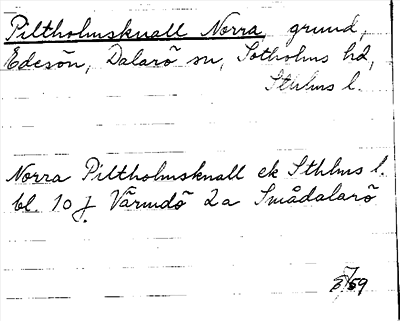 Piltholmsknall Norra grund,
Edesön, Dalarö sn, Sotholms hd,
Sthlms l.
Norra Piltholmsknall ek Sthlms l.
bl. 10 j. Värmdö 2a Smådalarö